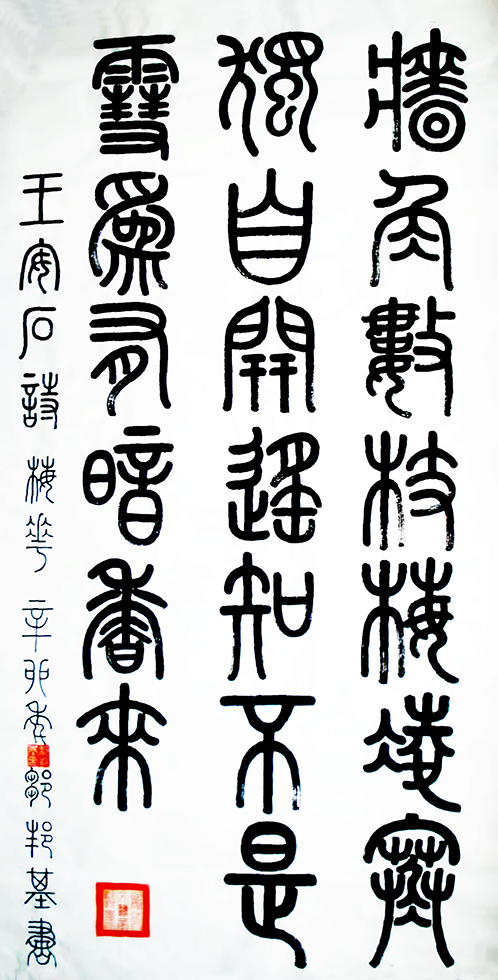 牆角數枝梅凌寒
獨自開遙知不是
雪爲有暗香來
王安石詩 梅華 辛卯季鄒邦基書